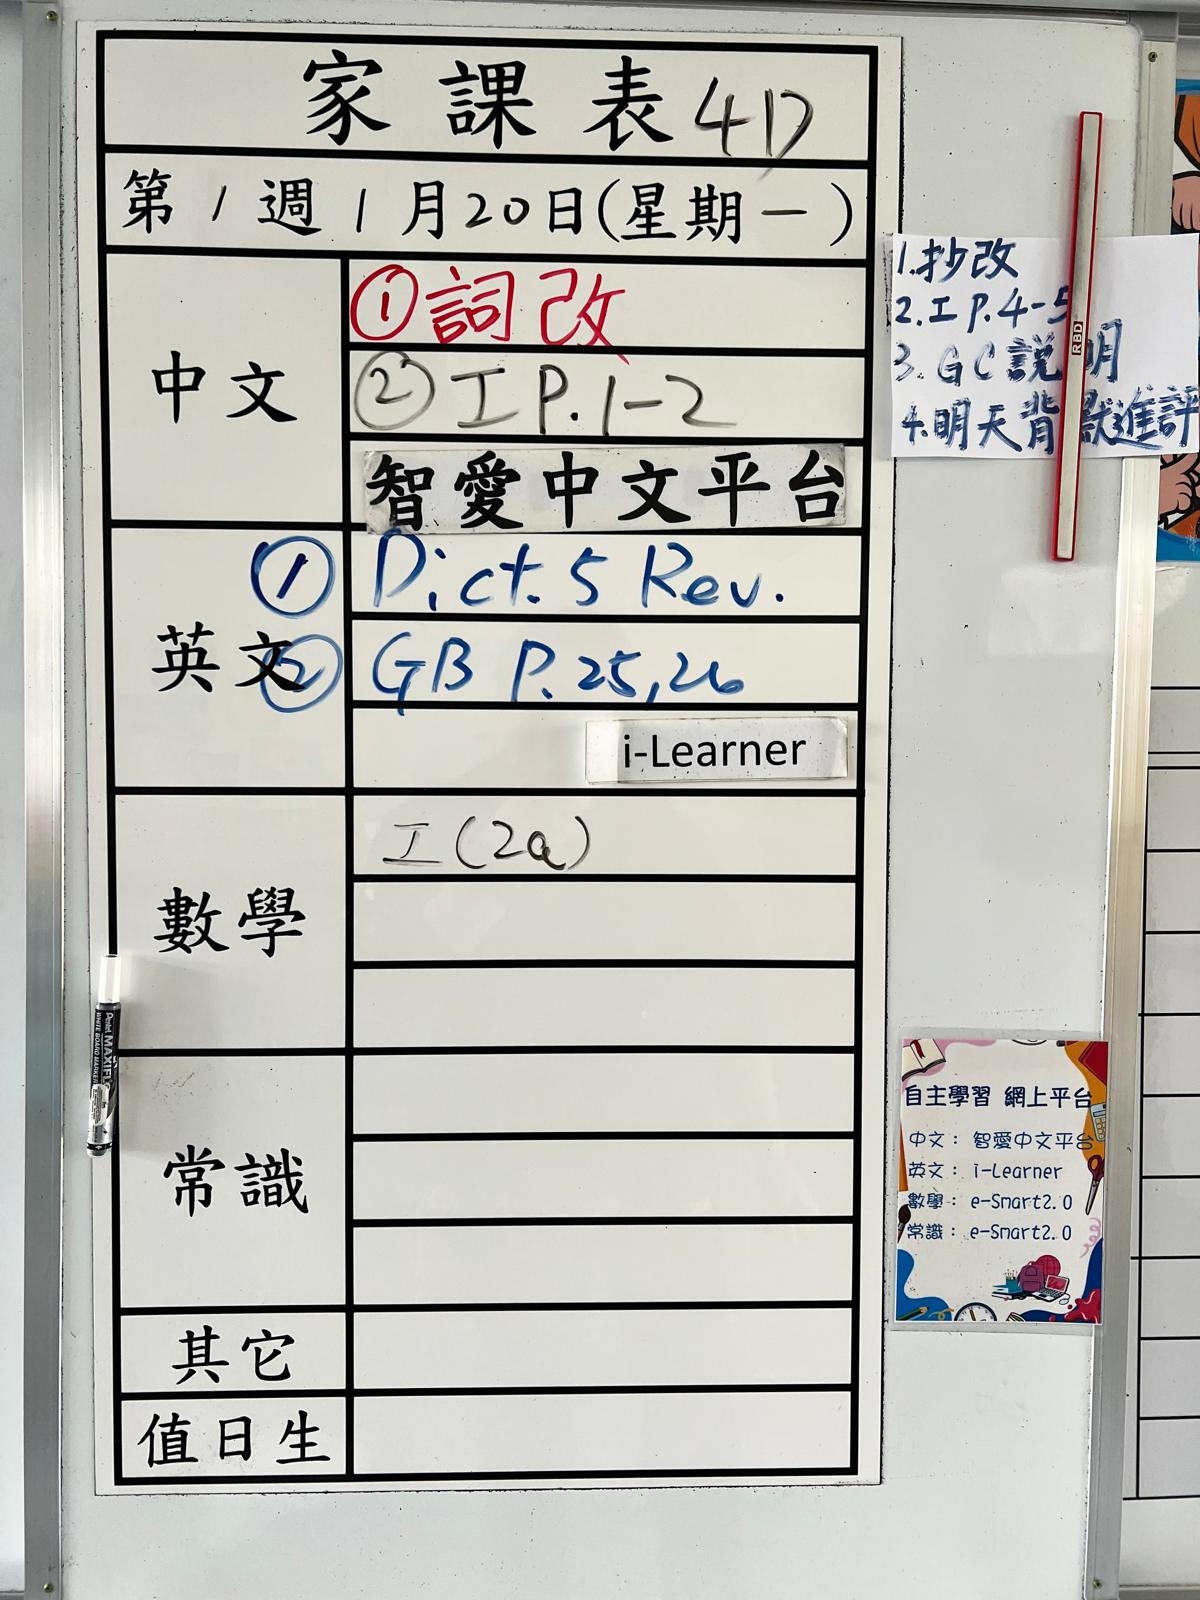 家課表 4D
第1週1月20日(星期一)
中文
①詞改
②工P.1-2
智愛中文平台
英文
① Dict. 5 Rev.
② GB P.25,26
i-Learner
數學
工(2a)
常識
其它
值日生
1.抄改
2.工P.4-5
3.GC說明
4.明天背默進評
RBD
Pentel MAXIFLO
WHITE BOARD MARKER
自主學習 網上平台
中文： 智愛中文平台
英文： i-Learner
數學： e-Smart2.0
常識： e-Smart2.0